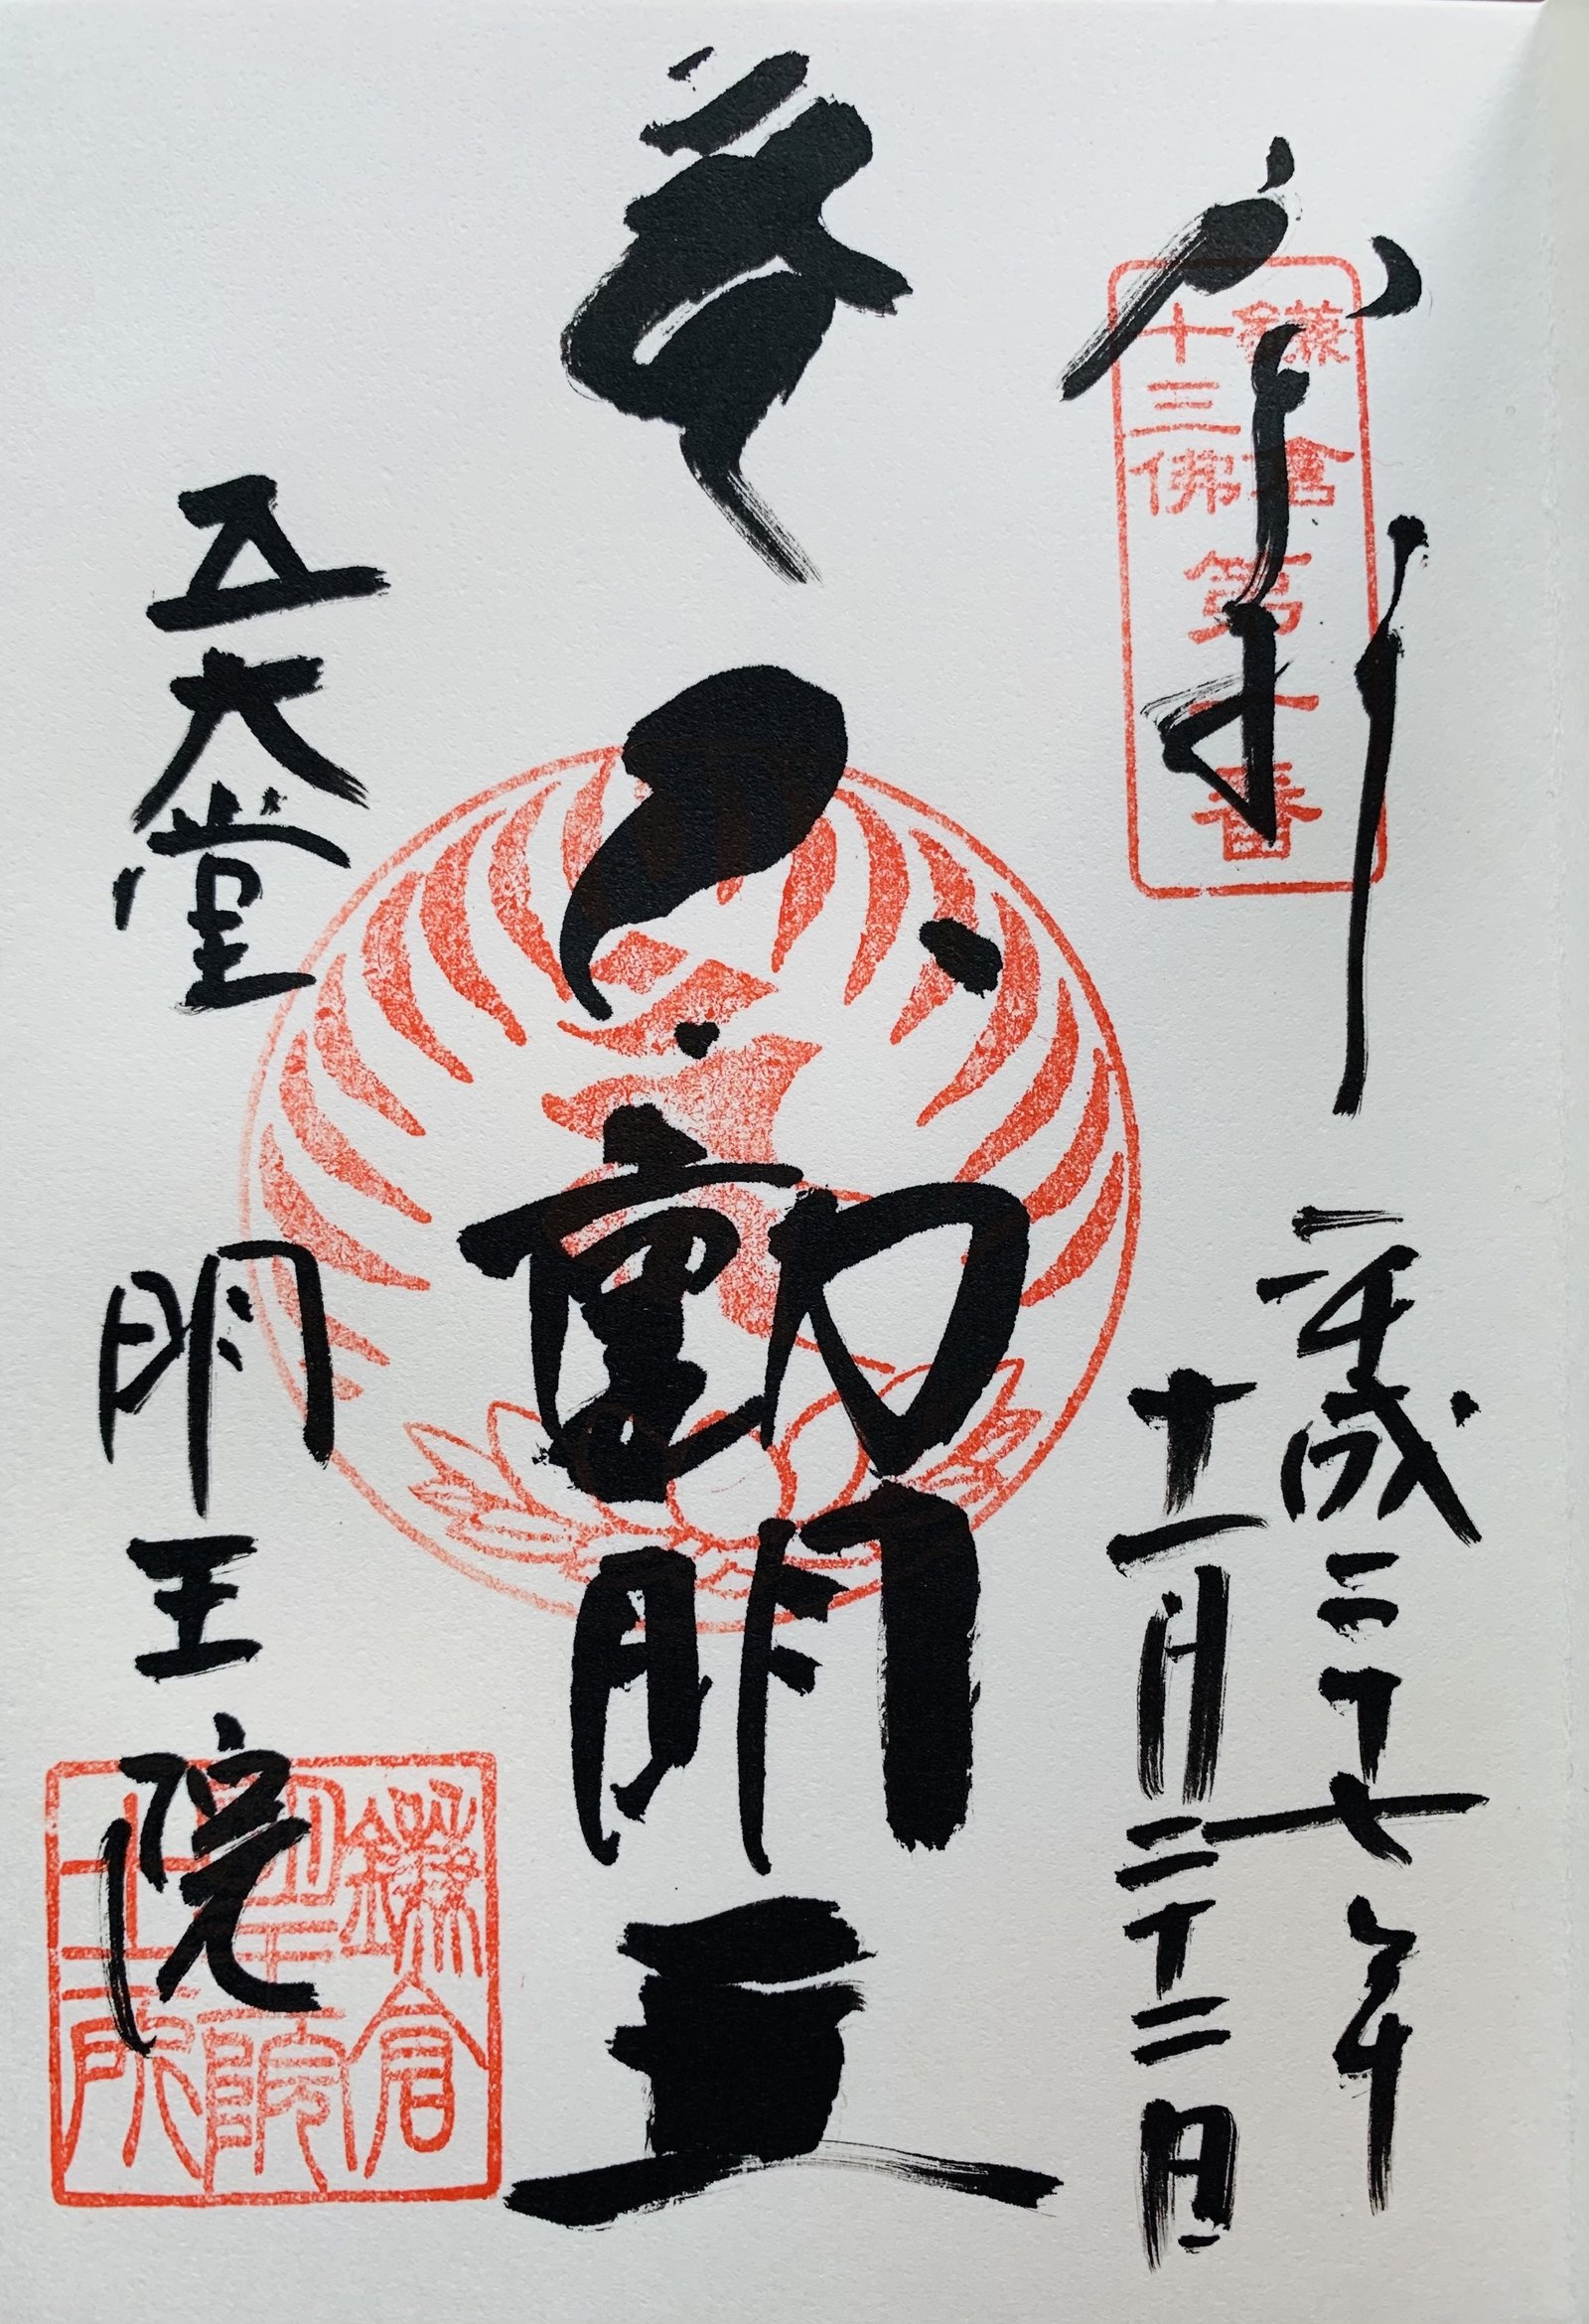 奉拝
鎌倉
十三佛
第一番
平成二十七年
十一月二十二日
不動明王
五大堂
明王院
鎌倉